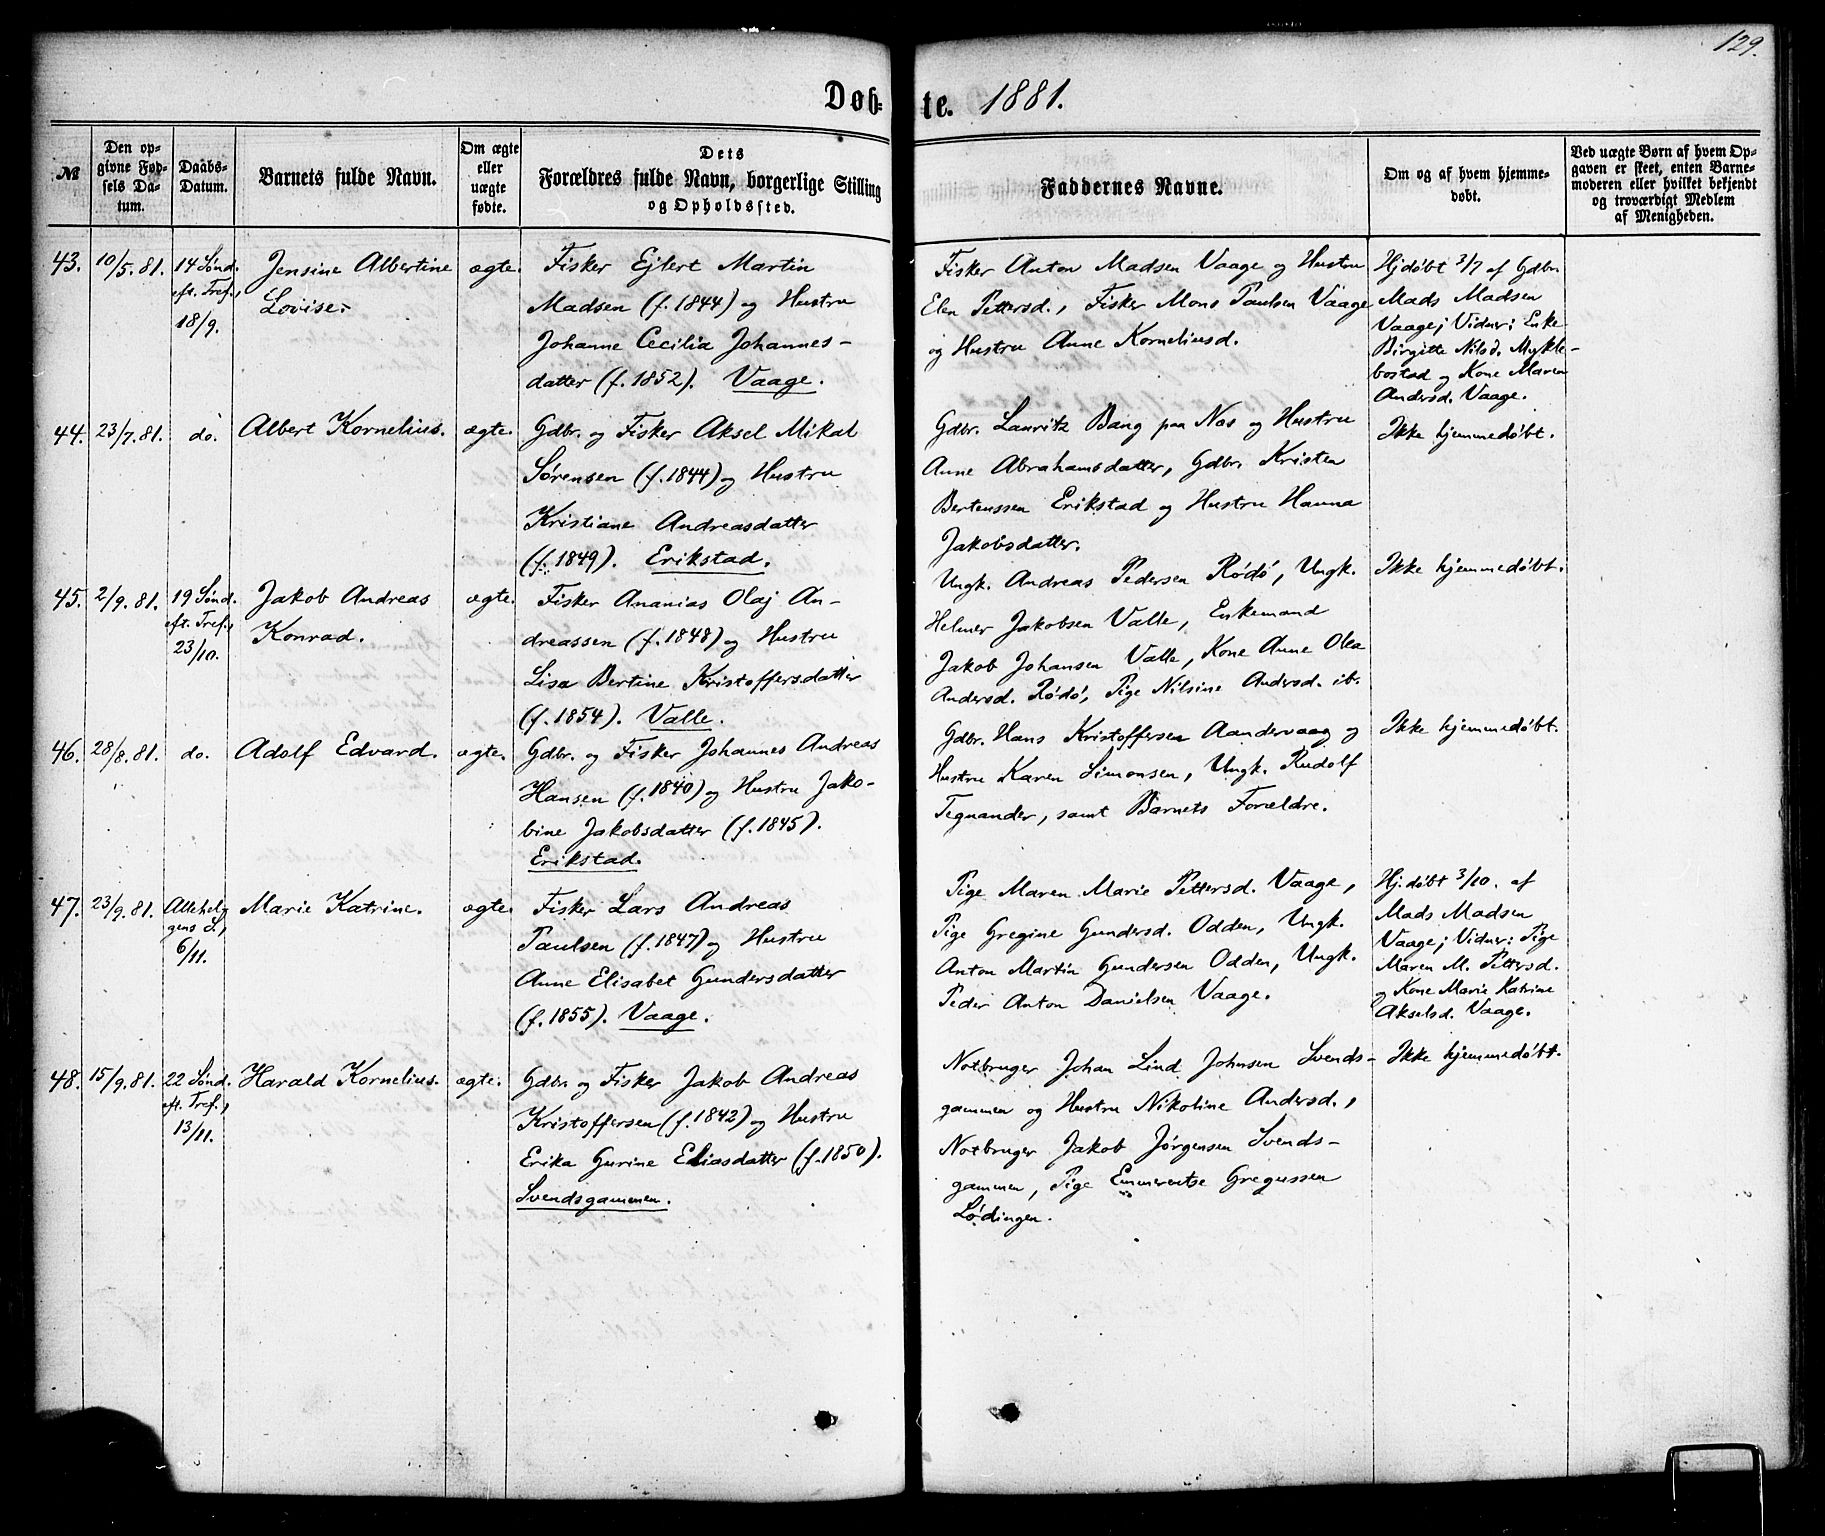 129.
Døbte. 1881.
№
Den opgivne Fødsels Datum.
Daabs-Datum.
Barnets fulde Navn.
Om ægte eller uægte fødte.
Dets Forældres fulde Navn, borgerlige Stilling og Opholdssted.
Faddernes Navne.
Om og af hvem hjemmedøbt.
Ved uægte Børn af hvem Opgaven er skeet, enten Barnemoderen eller hvilket bekjendt og troværdigt Medlem af Menigheden.
43.
10/5. 81.
14 Sønd.
eft. Tref.,
18/9.
Jensine Albertine
Lovise.
ægte.
Fisker Ejlert Martin
Madsen (f. 1844) og Hustru
Johanne Cecilia Johannes-
datter (f. 1852). Vaage.
Fisker Anton Madsen Vaage og Hustru
Elen Pettersd., Fisker Mons Paulsen Vaage
og Hustru Anne Korneliusd.
Hjdøbt 3/7 af Gdbr.
Mads Madsen
Vaage; Vidner: Enke
Birgitte Nilsd. Mykle-
bostad og Kone Maren
Andersd. Vaage.
44.
23/7. 81.
do.
Albert Kornelius.
ægte.
Gdbr. og Fisker Aksel Mikal
Sørensen (f. 1844) og Hustru
Kristiane Andreasdatter
(f. 1849). Erikstad.
Gdbr. Lauritz Bang paa Nes og Hustru
Anne Abrahamsdatter, Gdbr. Kristen
Berteussen Erikstad og Hustru Hanna
Jakobsdatter.
Ikke hjemmedøbt.
45.
2/9. 81.
19 Sønd.
eft. Tref.,
23/10.
Jakob Andreas
Konrad.
ægte.
Fisker Ananias Olaj An-
dreassen (f. 1848) og Hustru
Lisa Bertine Kristoffersdatter
(f. 1854). Valle.
Ungk. Andreas Pedersen Rødø, Ungk.
Helmer Jakobsen Valle, Enkemand
Jakob Johansen Valle, Kone Anne Olea
Andersd. Rødø, Pige Nilsine Andersd. ib.
Ikke hjemmedøbt.
46.
28/8. 81.
do.
Adolf Edvard.
ægte.
Gdbr. og Fisker Johannes Andreas
Hansen (f. 1840) og Hustru Jako-
bine Jakobsdatter (f. 1845).
Erikstad.
Gdbr. Hans Kristoffersen Aandervaag og
Hustru Karen Simonsen, Ungk. Rudolf
Tegnander, samt Barnets Forældre.
Ikke hjemmedøbt.
47.
23/9. 81.
Allehelg
gens S.,
6/11.
Marie Katrine.
ægte.
Fisker Lars Andreas
Paulsen (f. 1847) og Hustru
Anne Elisabet Gundersdatter
(f. 1855). Vaage.
Pige Maren Marie Pettersd. Vaage,
Pige Gregine Gundersd. Odden, Ungk.
Anton Martin Gundersen Odden, Ungk.
Peder Anton Danielsen Vaage.
Hj.døbt 3/10. af
Mads Madsen
Vaage; Vidner: Pige
Maren M. Pettersd.
og Kone Marie Katrine
Akselsd. Vaage.
48.
15/9. 81.
22 Sønd.
eft. Tref.,
13/11.
Harald Kornelius.
ægte.
Gdbr. og Fisker Jakob Andreas
Kristoffersen (f. 1842) og Hustru
Erika Gurine Eliasdatter (f. 1850).
Svendsgammen.
Notbruger Johan Lind Johnsen Svends-
gammen og Hustru Nikoline Andersd.,
Notbruger Jakob Jørgensen Svends-
gammen, Pige Emmerentse Gregussen
Lødingen.
Ikke hjemmedøbt.